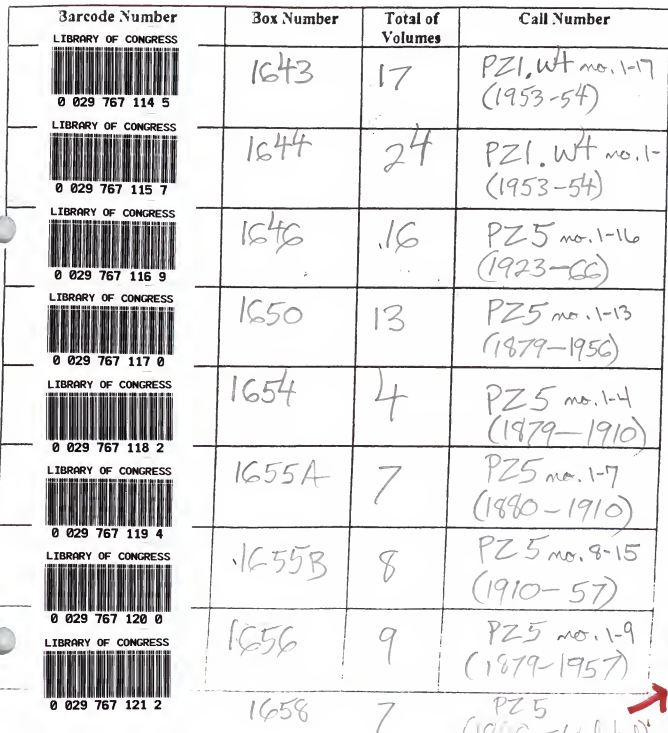 Barcode Number Box Number Total of Volumes Call Number
LIBRARY OF CONGRESS
0 029 767 114 5
1643 17 PZ1.W4 no. 1-17
(1953-54)
LIBRARY OF CONGRESS
0 029 767 115 7
1644 24 PZ1.W4 no. 1-
(1953-54)
LIBRARY OF CONGRESS
0 029 767 116 9
1646 16 PZ5 no. 1-16
(1923-66)
LIBRARY OF CONGRESS
0 029 767 117 0
1650 13 PZ5 no. 1-13
(1879-1956)
LIBRARY OF CONGRESS
0 029 767 118 2
1654 4 PZ5 no. 1-4
(1879-1910)
LIBRARY OF CONGRESS
0 029 767 119 4
1655A 7 PZ5 no. 1-7
(1880-1910)
LIBRARY OF CONGRESS
0 029 767 120 0
1655B 8 PZ5 no. 8-15
(1910-57)
LIBRARY OF CONGRESS
0 029 767 121 2
1656 9 PZ5 no. 1-9
(1879-1957)
1658 7 PZ5